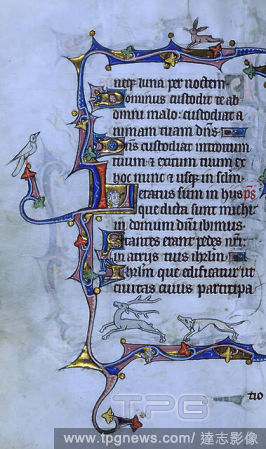 neq; luna per noctem
Dominus custodit te ab
omni malo: custodiat a
nimam tuam dñs
Dñs custodiat introitum
tuum & exitum tuum ex
hoc nunc & usq; in sclm
Letatus sum in hus ps
que dicta sunt michi
in domum dñi ibimus
Stantes erant pedes nři:
in atrijs tuis ihrlm
Ihrlm que edificatur ut
civitas cuius participa
tio
TPG
www.tpgnews.com / 達志影像